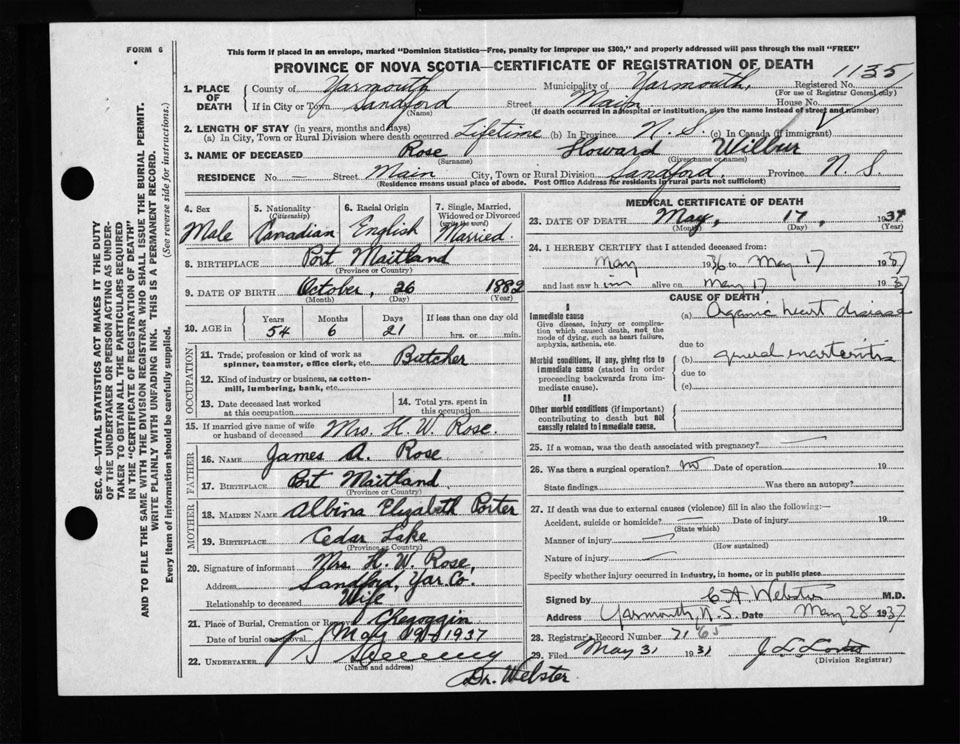 FORM 6
This form if placed in an envelope, marked "Dominion Statistics—Free, penalty for improper use $300," and properly addressed will pass through the mail "FREE"
PROVINCE OF NOVA SCOTIA—CERTIFICATE OF REGISTRATION OF DEATH
1135
1. PLACE OF DEATH County of Yarmouth Municipality of Yarmouth, Registered No.
(For use of Registrar General only)
If in City or Town Sandford Street Main House No. —
(Name) (If death occurred in a hospital or institution, give the name instead of street and number)
2. LENGTH OF STAY (in years, months and days)
(a) In City, Town or Rural Division where death occurred Lifetime (b) In Province N. S. (c) In Canada (if immigrant)
3. NAME OF DECEASED Rose Howard Wilbur
(Surname) (Given name or names)
RESIDENCE No. — Street Main City, Town or Rural Division Sandford. Province N. S.
(Residence means usual place of abode. Post Office Address for residents in rural parts not sufficient)
4. Sex Male
5. Nationality (Citizenship) Canadian
6. Racial Origin English
7. Single, Married, Widowed or Divorced (write the word) Married
8. BIRTHPLACE Port Maitland
(Province or Country)
9. DATE OF BIRTH October, 26 1882
(Month) (Day) (Year)
10. AGE in Years Months Days If less than one day old
54 6 21 hrs. or min.
OCCUPATION
11. Trade, profession or kind of work as spinner, teamster, office clerk, etc. Butcher
12. Kind of industry or business, as cotton-mill, lumbering, bank, etc.
13. Date deceased last worked at this occupation
14. Total yrs. spent in this occupation
15. If married give name of wife or husband of deceased Mrs. H. W. Rose.
FATHER
16. NAME James A. Rose
17. BIRTHPLACE Port Maitland
(Province or Country)
MOTHER
18. MAIDEN NAME Albina Elizabeth Porter
19. BIRTHPLACE Cedar Lake
(Province or Country)
20. Signature of informant Mrs. H. W. Rose,
Address Sandford, Yar. Co.
Relationship to deceased Wife
21. Place of Burial, Cremation or Removal Chegoggin
Date of burial or removal May 19th 1937
22. UNDERTAKER J S Sweeney
(Name and address)
Dr. Webster
MEDICAL CERTIFICATE OF DEATH
23. DATE OF DEATH May, 17, 1937
(Month) (Day) (Year)
24. I HEREBY CERTIFY that I attended deceased from:
May 1936 to May 17 1937
and last saw him alive on May 17 1937
CAUSE OF DEATH
I
Immediate cause
Give disease, injury or complication which caused death, not the mode of dying, such as heart failure, asphyxia, asthenia, etc.
(a) Organic heart disease
due to
Morbid conditions, if any, giving rise to immediate cause (stated in order proceeding backwards from immediate cause).
(b) general
due to
(c)
II
Other morbid conditions (if important) contributing to death but not causally related to immediate cause.
25. If a woman, was the death associated with pregnancy? —
26. Was there a surgical operation? no Date of operation 19
State findings Was there an autopsy?
27. If death was due to external causes (violence) fill in also the following:—
Accident, suicide or homicide? — Date of injury 19
(State which)
Manner of injury —
(How sustained)
Nature of injury —
Specify whether injury occurred in industry, in home, or in public place
Signed by C A Webster M.D.
Address Yarmouth, N.S. Date May 28 1937
28. Registrar's Record Number
29. Filed May 31 1937 J L
(Division Registrar)
SEC. 46—VITAL STATISTICS ACT MAKES IT THE DUTY
OF THE UNDERTAKER OR PERSON ACTING AS UNDER-
TAKER TO OBTAIN ALL THE PARTICULARS REQUIRED
IN THE "CERTIFICATE OF REGISTRATION OF DEATH"
AND TO FILE THE SAME WITH THE DIVISION REGISTRAR WHO SHALL ISSUE THE BURIAL PERMIT.
WRITE PLAINLY WITH UNFADING INK. THIS IS A PERMANENT RECORD.
Every item of information should be carefully supplied. (See reverse side for instructions.)